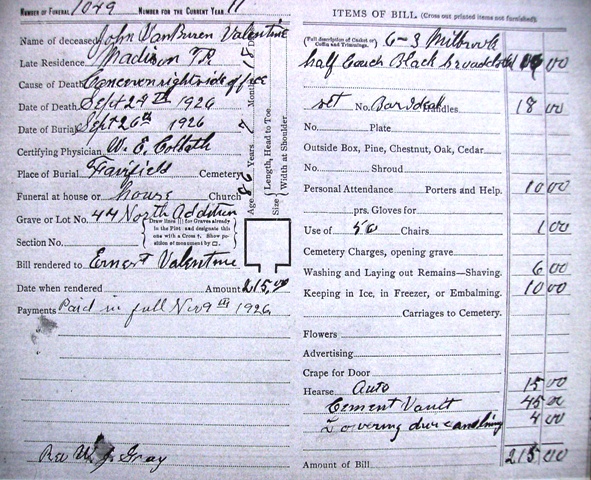 NUMBER OF FUNERAL 1049 NUMBER FOR THE CURRENT YEAR 11
Name of deceased John VanBuren Valentine
Late Residence Madison TR
Cause of Death Cancer on right side of face
Date of Death Sept 24th 1926
Date of Burial Sept 26th 1926
Certifying Physician W. E. Colbath
Place of Burial Fairfield Cemetery
Funeral at house or house Church
Grave or Lot No. 44 North Addition
Section No.
Draw lines for Graves already in the Plot and designate this one with a Cross †. Show position of monument by □.
Bill rendered to Ernest Valentine
Date when rendered Amount 215.00
Payments Paid in full Nov 9th 1926
Rev W. J. Gray
Age 86 Years 7 Months 14 D
Size Length, Head to Toe
Width at Shoulder
ITEMS OF BILL (Cross out printed items not furnished)
(Full description of Casket or Coffin and Trimmings.) 6-3 Milbrook
half Couch Black broadcloth 00
set No. Bar Handles 18 00
No. Plate
Outside Box, Pine, Chestnut, Oak, Cedar
No. Shroud
Personal Attendance Porters and Help. 10 00
prs. Gloves for
Use of Chairs 1 00
Cemetery Charges, opening grave
Washing and Laying out Remains—Shaving. 6 00
Keeping in Ice, in Freezer, or Embalming. 10 00
Carriages to Cemetery.
Flowers
Advertising
Crape for Door
Hearse Auto 15 00
Cement Vault 45 00
Lowering device and lining 4 00
Amount of Bill 215 00